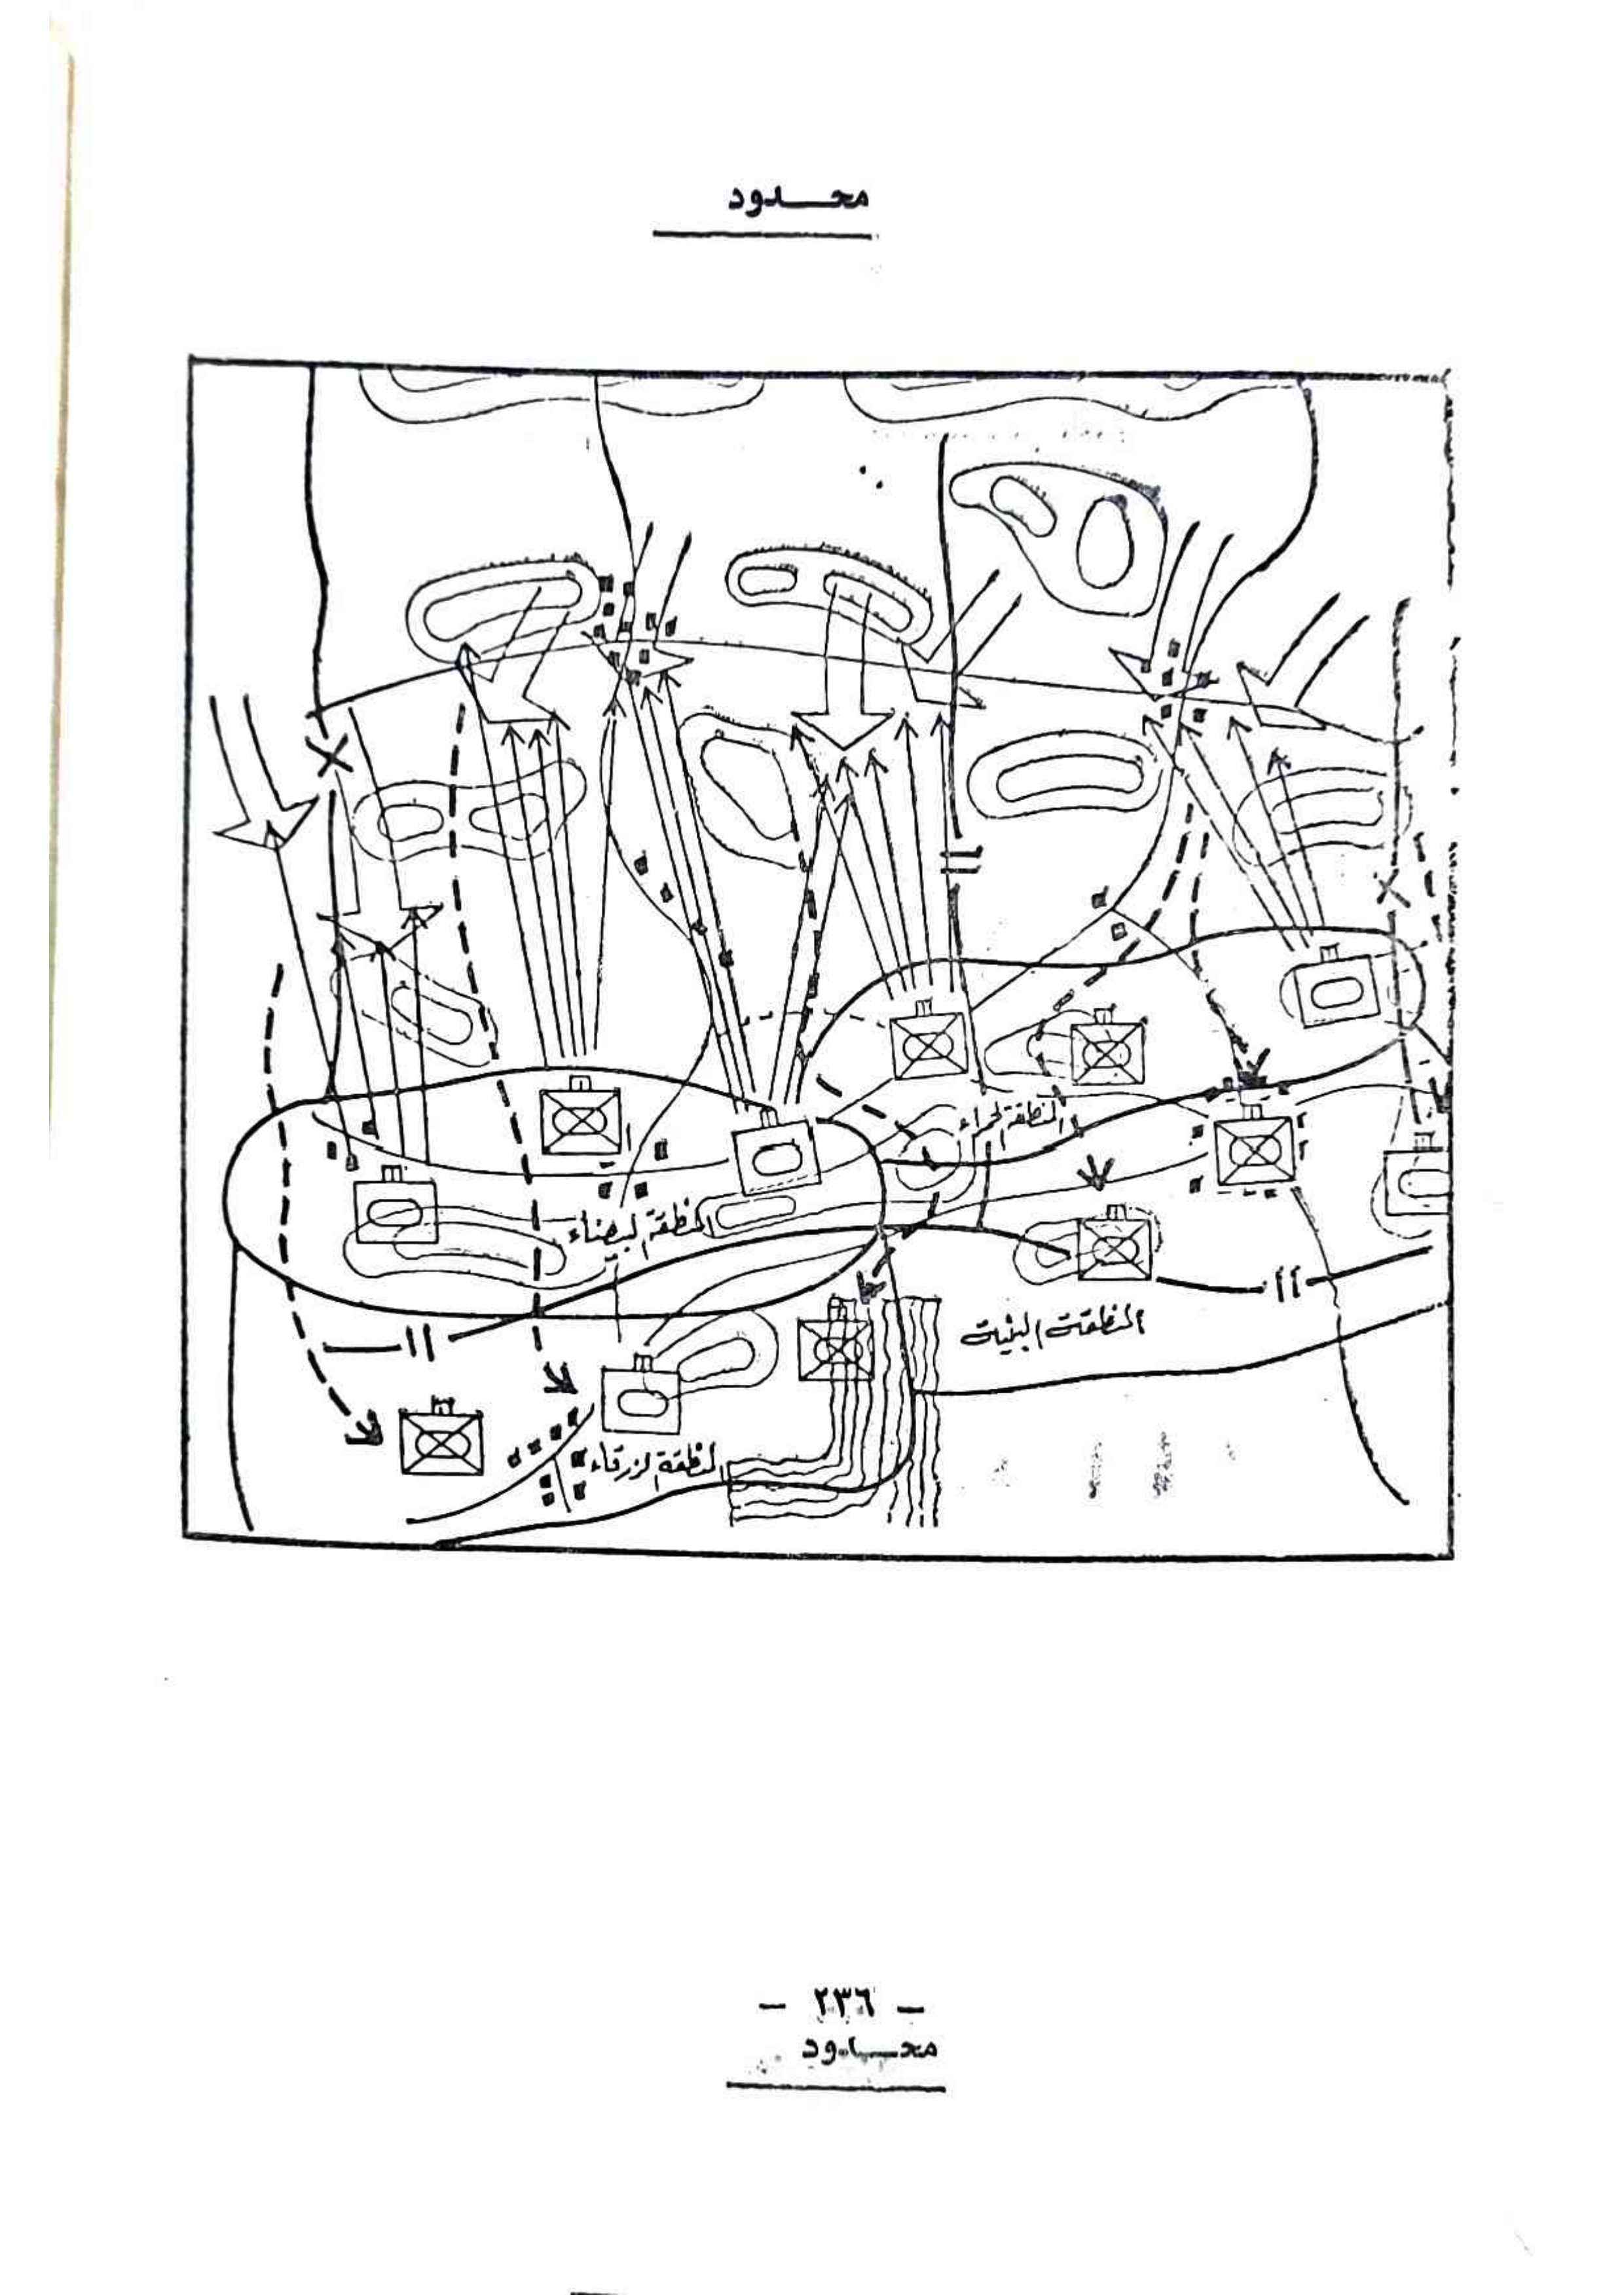 محـــدود
المنطقة الحمراء
المنطقة البيضاء
المنطقة البنية
المنطقة الزرقاء
- ٢٣٦ -
محـــدود